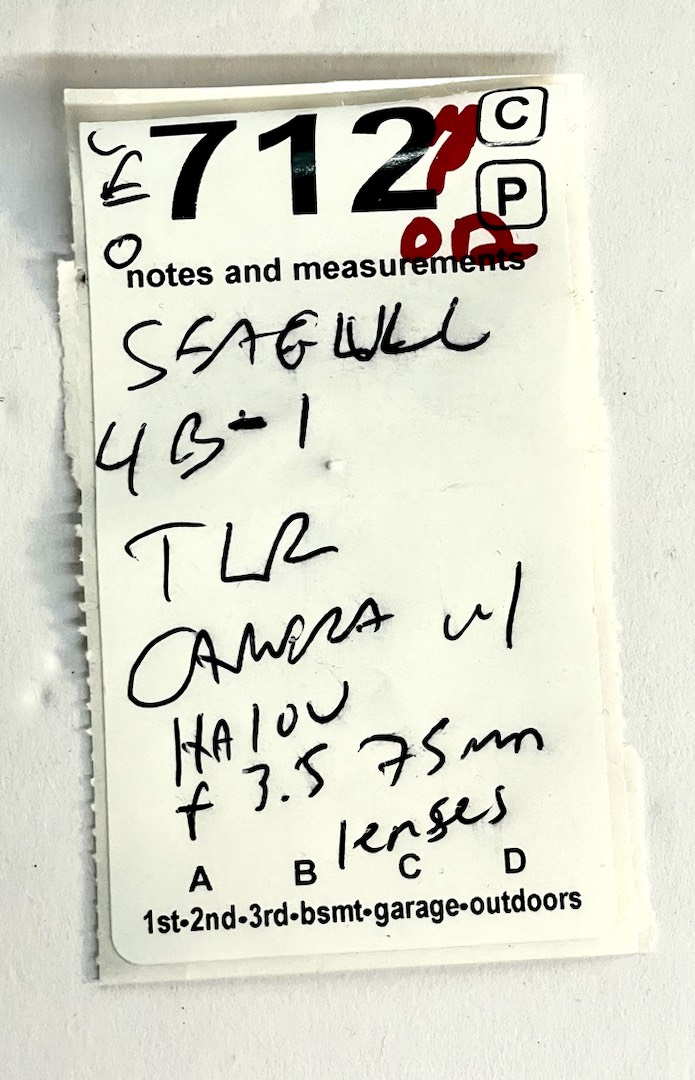 712
C
P
notes and measurements
SEAGULL
4B-1
TLR
CAMERA w/
HAIOU
f 3.5 75mm
lenses
A B C D
1st•2nd•3rd•bsmt•garage•outdoors